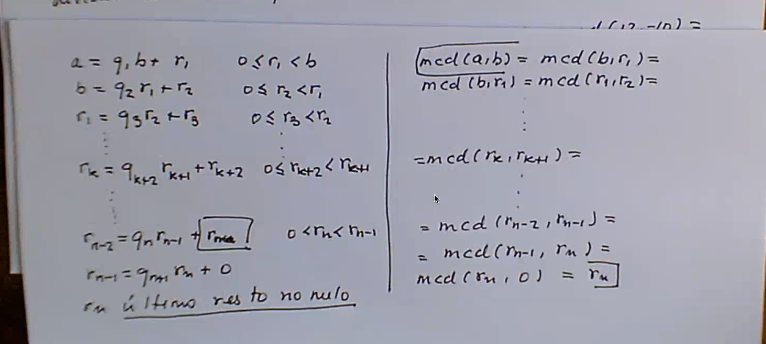 (12,-10) =
a = q₁b + r₁ 0 ≤ r₁ < b
b = q₂r₁ + r₂ 0 ≤ r₂ < r₁
r₁ = q₃r₂ + r₃ 0 ≤ r₃ < r₂
⋮ ⋮
rₖ = qₖ₊₂ rₖ₊₁ + rₖ₊₂ 0 ≤ rₖ₊₂ < rₖ₊₁
⋮
rₙ₋₂ = qₙ rₙ₋₁ + 0 < rₙ < rₙ₋₁
rₙ₋₁ = qₙ₊₁ rₙ + 0
rₙ último resto no nulo
mcd(a,b) = mcd(b,r₁) =
mcd(b,r₁) = mcd(r₁,r₂) =
⋮
= mcd(rₖ,rₖ₊₁) =
⋮
= mcd(rₙ₋₂,rₙ₋₁) =
= mcd(rₙ₋₁,rₙ) =
mcd(rₙ,0) = rₙ